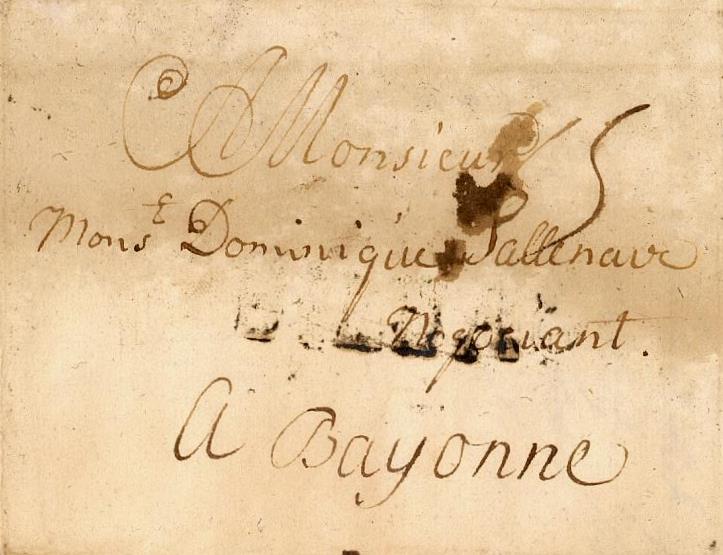 A Monsieur 5
Monsr Dominique Sallenave
Negociant.
A Bayonne